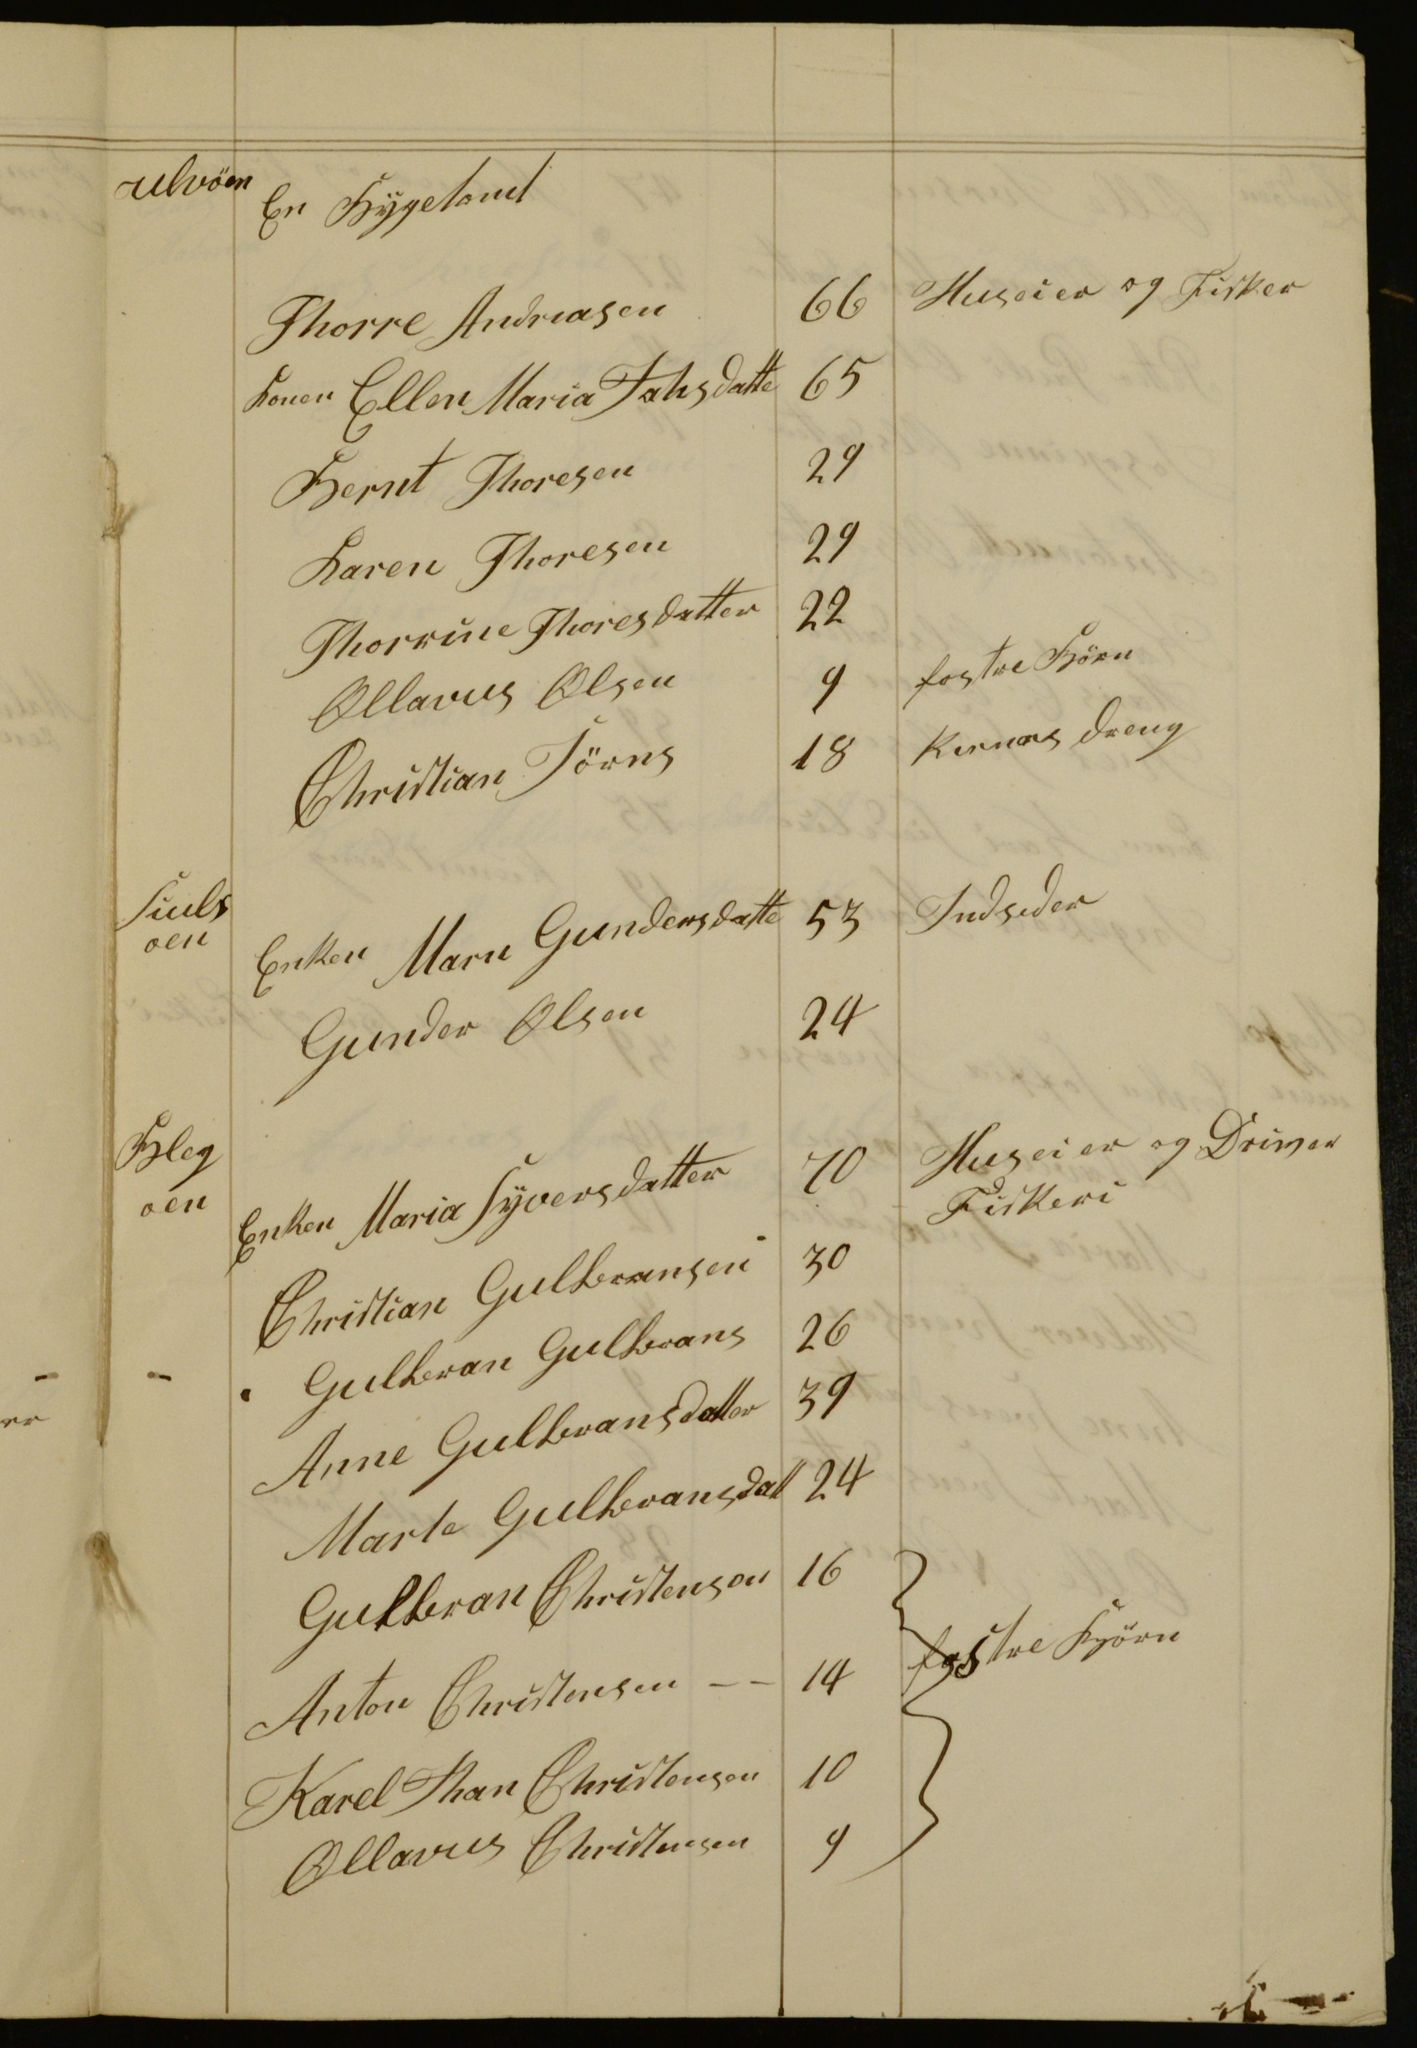 Ulvöen En Bygetomt
Thorre Andreasen 66 Huseier og Fisker
Konen Ellen Maria Jahsdatte 65
Bernt Thoresen 29
Karen Thoresen 29
Thorrine Thoresdatter 22
Ollavus Olsen 9 fostre Börn
Christian Jörns 18 Kernas dreng
Siuls
oen
Enken Marn Gundersdatte 53 Indseder
Gunder Olsen 24
Bleg
oen
Enken Maria Syversdatter 70 Huseier og Driver
Fiskeri
Christian Gulbransen 30
Gulbran Gulbrans 26
Anne Gulbransdatter 39
Marte Gulbransdatt 24
Gulbran Christensen 16
fostre Björn
Anton Christensen -- 14
Karel Than Christensen 10
Ollavus Christensen 9